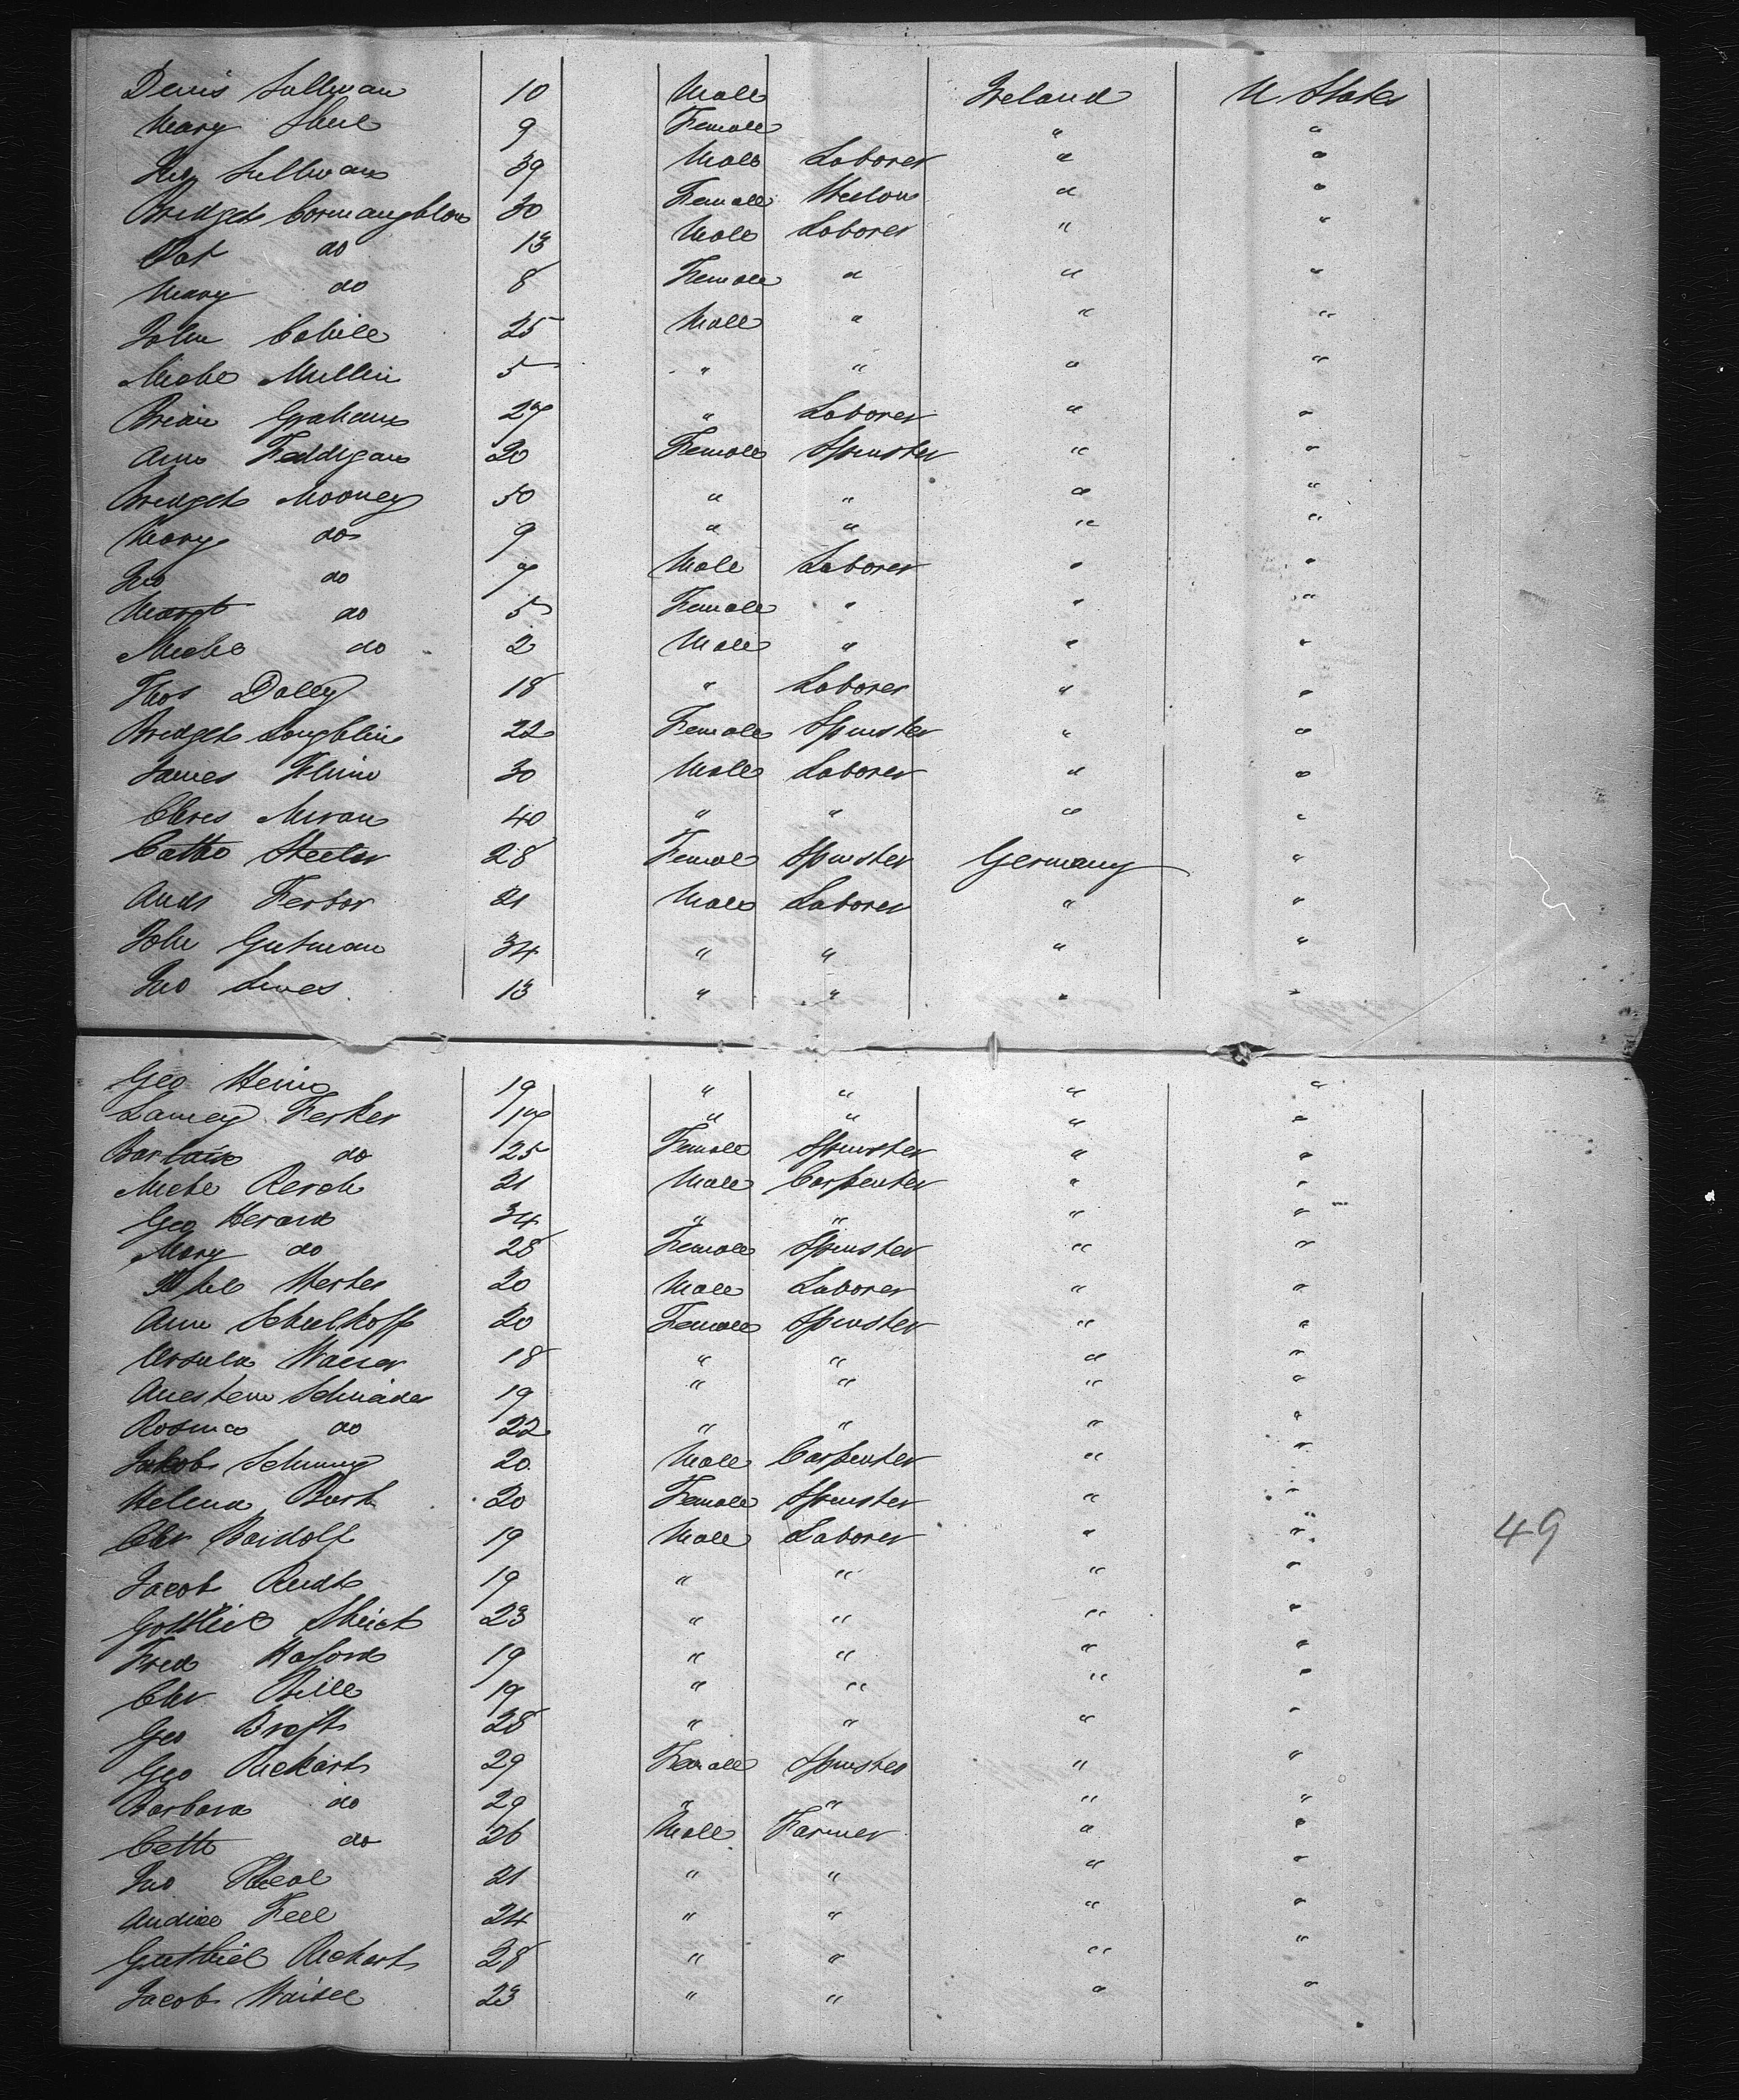 Denis Sullivan 10 Male Ireland U States
Mary Shul 9 Female " "
Sullivan 39 Male Laborer " "
Bridget Cormaughton 30 Female " "
Pat do 13 Male Laborer " "
Mary do 8 Female " " "
John Cahill 25 Male " " "
Michl Mullin 5 " " " "
Brian Graham 27 " Laborer " "
Ann Feddigan 20 Female Spinster " "
Bridget Mooney 50 " " " "
Mary do 9 " " " "
Jno do 7 Male Laborer " "
Margt do 5 Female " " "
Michl do 2 Male " " "
Thos Daley 18 " Laborer " "
Bridget Loughlin 22 Female Spinster " "
James Flinn 30 Male Laborer " "
Chres Mivan 40 " " " "
Cathe Steeler 28 Female Spinster Germany "
Andr Ferber 21 Male Laborer " "
John Gutman 34 " " " "
Jno Lines 13 " " " "
Geo Heim 19 " " " "
Lamey Ferker 17 " " " "
Barbara do 25 Female Spinster " "
Michl Resch 21 Male Carpenter " "
Geo Herand 34 " " " "
Mary do 28 Female Spinster " "
Phil Herter 20 Male Laborer " "
Ann Schulkoff 20 Female Spinster " "
Ursula Waeser 18 " " " "
Schnider 19 " " " "
Rosina do 22 " " " "
Jakob Schung 20 Male Carpenter " "
Helena Bart 20 Female Spinster " "
Chr Baidolt 19 Male Laborer " "
49
Jacob Rudt 19 " " " "
Gottlieb Shick 23 " " " "
Fred Haford 19 " " " "
Chr Bill 19 " " " "
Geo Braft 28 " " " "
Geo Rickart 29 Female Spinster " "
Barbara do 29 " " " "
Cetti do 26 Male Farmer " "
Jno Theal 21 " " " "
Andrae Fell 24 " " " "
Guthiel Rickart 28 " " " "
Jacob Waisel 23 " " " "